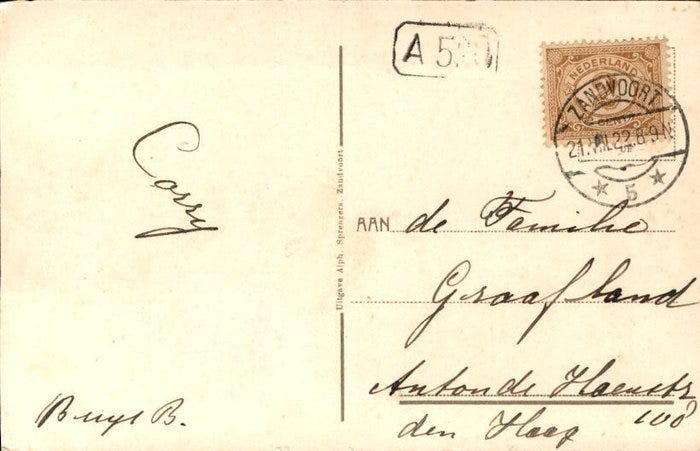 A 5
NEDERLAND
ZANDVOORT
21.VII.22.8-9N
5
Corry
Uitgave Alph. Sprengers, Zandvoort.
AAN de Familie
Graafland
Anton de Haenstr
100
den Haag
B.